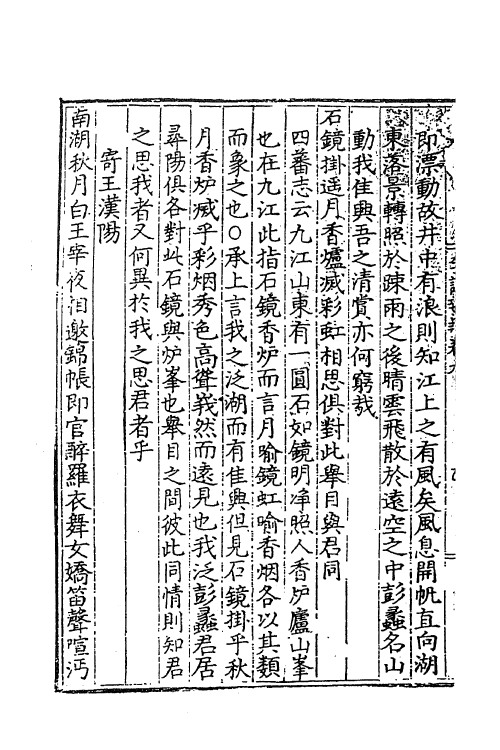 即漂動故井中有浪則知江上之有風矣風息開帆直向湖
東落景轉照於疎雨之後晴雲飛散於遠空之中彭蠡名山
動我佳興吾之清賞亦何窮哉
石鏡掛遥月香爐滅彩虹相思俱對此舉目與君同
四蕃志云九江山東有一圓石如鏡明净照人香炉廬山峯
也在九江此指石鏡香炉而言月喻鏡虹喻香烟各以其類
而象之也○承上言我之泛湖而有佳興但見石鏡掛乎秋
月香炉滅乎彩烟秀色高聳峩然而遠見也我泛彭蠡君居
尋陽俱各對此石鏡與炉峯也舉目之間彼此同情則知君
之思我者又何異於我之思君者乎
寄王漢陽
南湖秋月白王宰夜相邀錦帳郎官醉羅衣舞女嬌笛聲喧沔